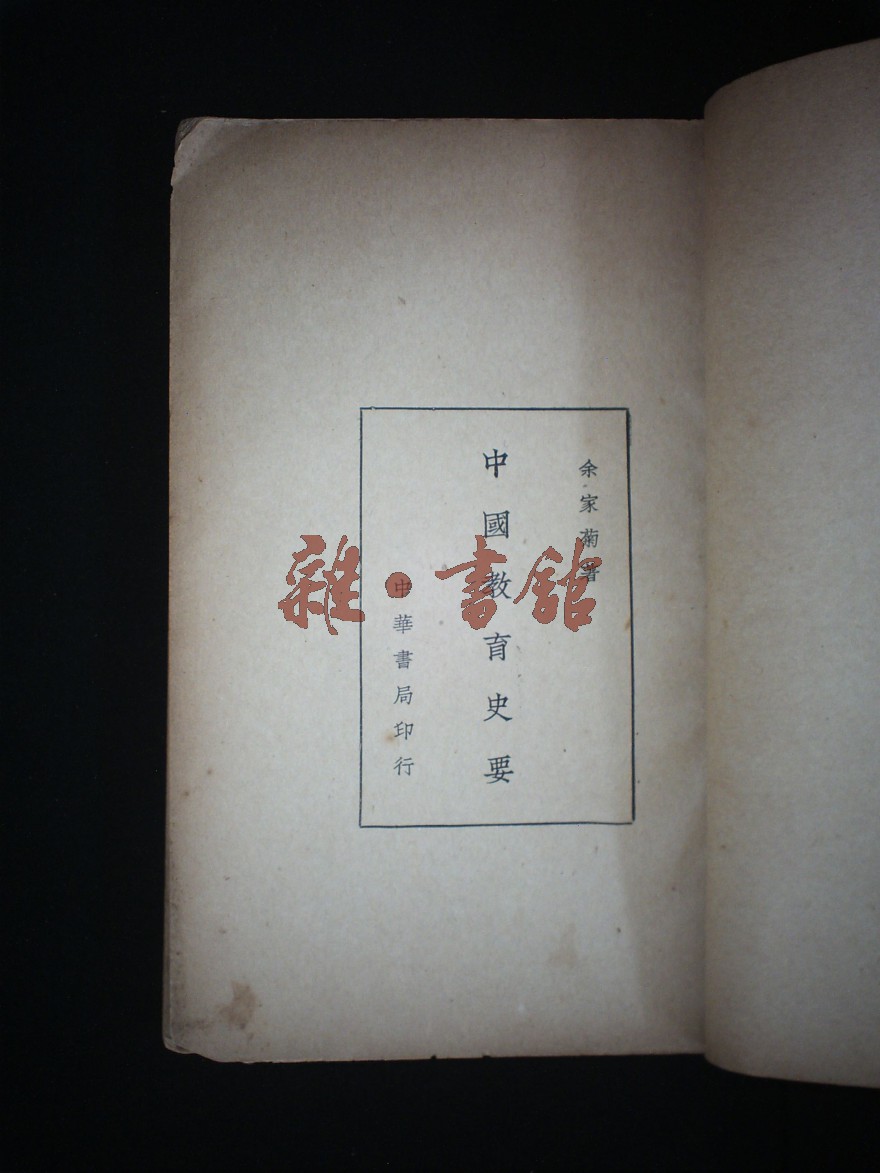 余家菊著
中國教育史要
中華書局印行
雜·書館